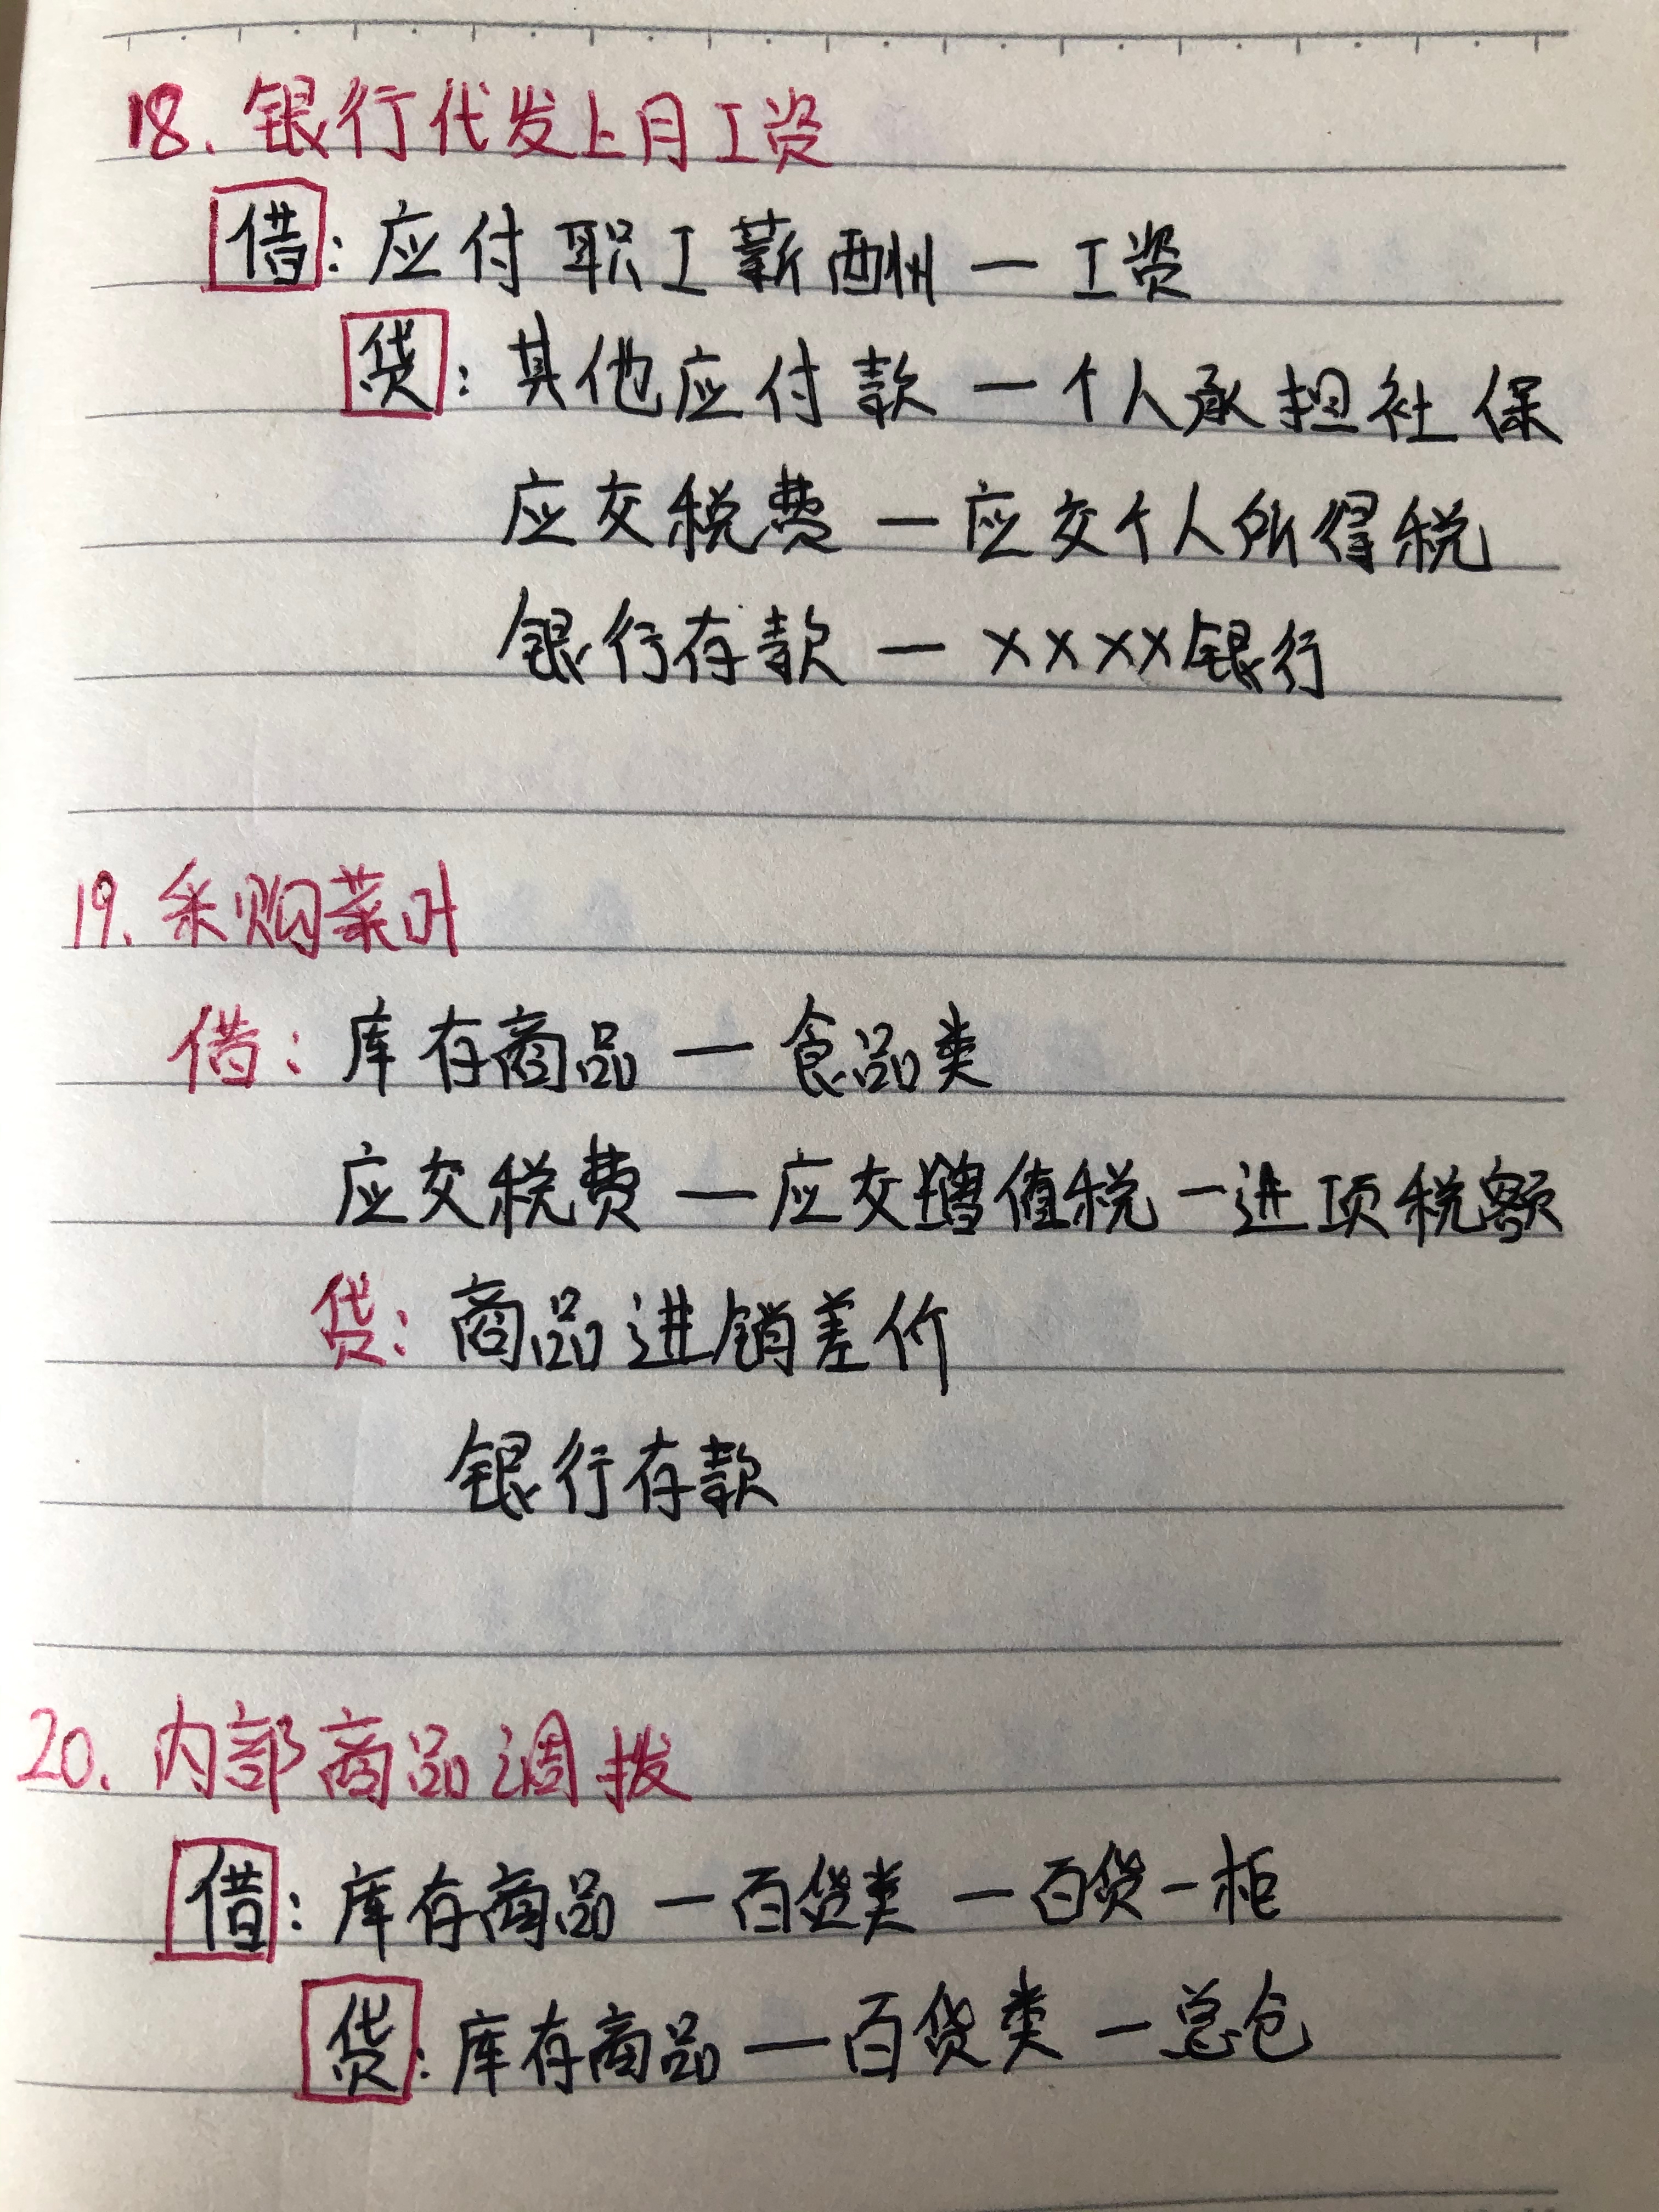 18. 银行代发上月工资
借: 应付职工薪酬 — 工资
贷: 其他应付款 — 个人承担社保
应交税费 — 应交个人所得税
银行存款 — ××××银行
19. 采购菜叶
借: 库存商品 — 食品类
应交税费 — 应交增值税 — 进项税额
贷: 商品进销差价
银行存款
20. 内部商品调拨
借: 库存商品 — 百货类 — 百货一柜
贷: 库存商品 — 百货类 — 总仓